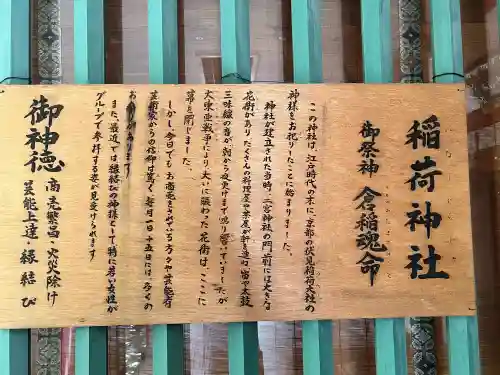 稲荷神社
いなりじんじゃ
御祭神 倉稲魂命
この神社は、江戸時代の末に、京都の伏見稲荷大社の
神様をお祀りしたことに始まりました。
神社が建立された当時、二宮神社の門前には大きな
花街があり たくさんの料理屋や茶屋が軒を連ね 笛や太鼓
三味線の音が、朝から夜更けまで鳴り響いていましたが
大東亜戦争により、大いに賑わった花街は、ここに
幕を閉じました。
しかし、今日でも、お商売をされている方々や芸能
芸術家からの信仰は篤く 毎月一日、十五日には、多くの
お あります
また、最近では縁結びの神様として特に若い女性が
グループで参拝する姿が見受けられます
御神徳
商売繁昌・火災除け
芸能上達・縁結び